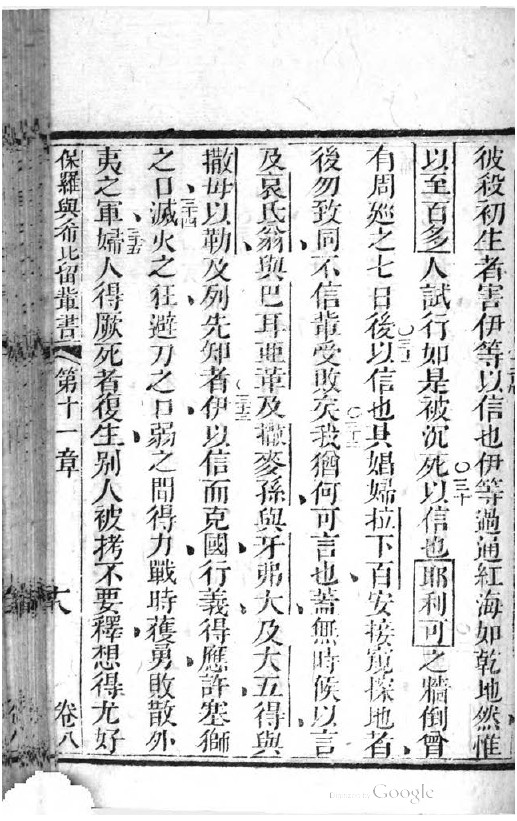 彼殺初生者害伊等以信也伊等過通紅海如乾地然惟
三十
以至百多人試行如是被沉死以信也耶利可之牆倒曾
三一
有周廵之七日後以信也其娼婦拉下百安接窺探地者
三二
後勿致同不信輩受敗矣我猶何可言也蓋無時候以言
三三
及哀氏翁與巴耳亜革及撒麥孫與牙弗大及大五得與
撒毋以勒及列先知者伊以信而克國行義得應許塞獅
三十四
之口滅火之狂避刀之口弱之間得力戰時獲勇敗散外
三十五
夷之軍婦人得厥死者復生別人被拷不要釋想得尤好
保羅與希比留輩書 第十一章 卷八
Digitized by Google